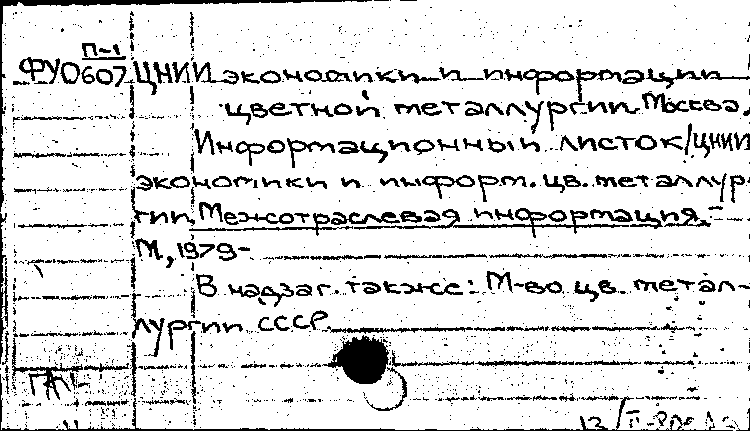 П-1
ФУО607 ЦНИИ экономики и информации
цветной металлургии. Москва.
Информационный листок/ЦНИИ
экономики и информ. цв. металлур-
гии. Межотраслевая информация. -
М., 1979-
В надзаг. также: М-во цв. метал-
лургии СССР.